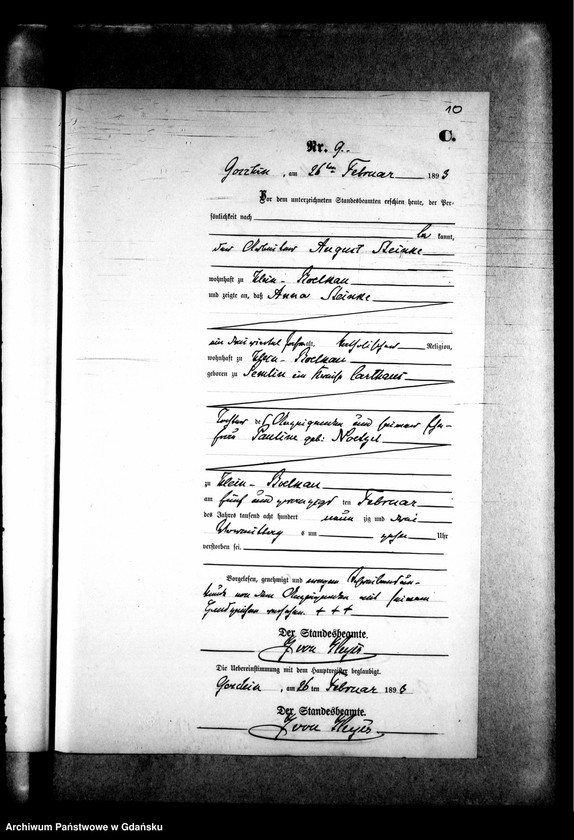 10
C.
Nr. 9.
, am 26ten Februar 1893
Vor dem unterzeichneten Standesbeamten erschien heute, der Per-
sönlichkeit nach
be kannt,
der Arbeiter August Steinke
wohnhaft zu Klein-Boelkau
und zeigte an, daß Anna Steinke
ein drei viertel Jahr alt, katholischer Religion,
wohnhaft zu Klein-Boelkau
geboren zu Semlin im Kreise Carthaus
Tochter des Anzeigenden und seiner Ehe-
frau Pauline geb: Noetzel
zu Klein-Boelkau
am fünf und zwanzigsten Februar
des Jahres tausend acht hundert neun zig und drei
Vormittags um zehn Uhr
verstorben sei.
Vorgelesen, genehmigt und wegen Schreibensun-
kunde von dem Anzeigenden mit seinem
Handzeichen versehen. + + +
Der Standesbeamte.
von Heyer
Die Uebereinstimmung mit dem Hauptregister beglaubigt.
, am 26 ten Februar 1893
Der Standesbeamte.
von Heyer
Archiwum Państwowe w Gdańsku